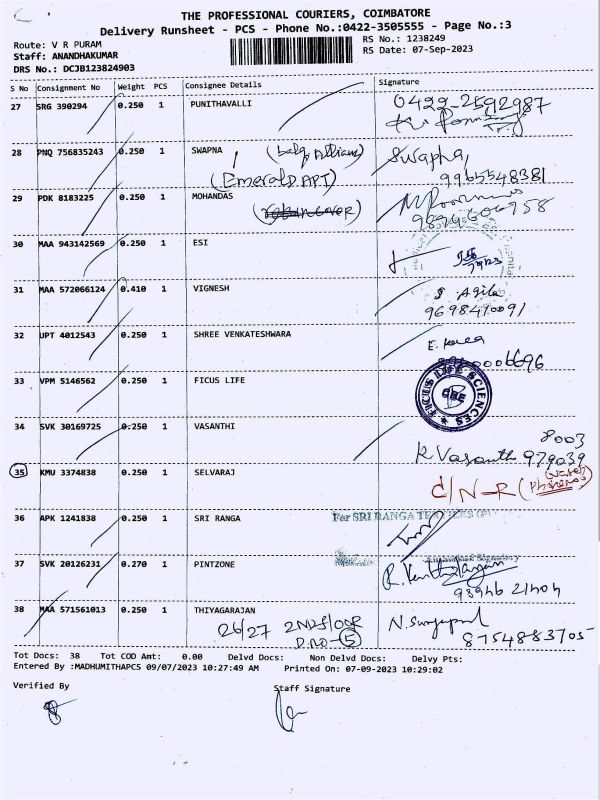 THE PROFESSIONAL COURIERS, COIMBATORE
Delivery Runsheet - PCS - Phone No.:0422-3505555 - Page No.:3
Route: V R PURAM
RS No.: 1238249
Staff: ANANDHAKUMAR
RS Date: 07-Sep-2023
DRS No.: DCJB123824903
S No Consignment No Weight PCS Consignee Details Signature
27 SRG 390294 0.250 1 PUNITHAVALLI 0422-2592987
28 PNQ 756835243 0.250 1 SWAPNA Swapna
(Emerald APT) 9965548381
29 PDK 8183225 0.250 1 MOHANDAS
9894606958
30 MAA 943142569 0.250 1 ESI
31 MAA 572066124 0.410 1 VIGNESH
9698470091
32 UPT 4012543 0.250 1 SHREE VENKATESHWARA
33 VPM 5146562 0.250 1 FICUS LIFE
FICUS LIFE SCIENCES
34 SVK 30169725 0.250 1 VASANTHI 8003
R. Vasanth 979039
35 KMU 3374838 0.250 1 SELVARAJ C/N-R
36 APK 1241838 0.250 1 SRI RANGA For SRI RANGA
37 SVK 20126231 0.270 1 PINTZONE
38 MAA 571561013 0.250 1 THIYAGARAJAN
26/27 2nd floor
D.no-(5) 8754883705
Tot Docs: 38 Tot COD Amt: 0.00 Delvd Docs: Non Delvd Docs: Delvy Pts:
Entered By :MADHUMITHAPCS 09/07/2023 10:27:49 AM Printed On: 07-09-2023 10:29:02
Verified By Staff Signature